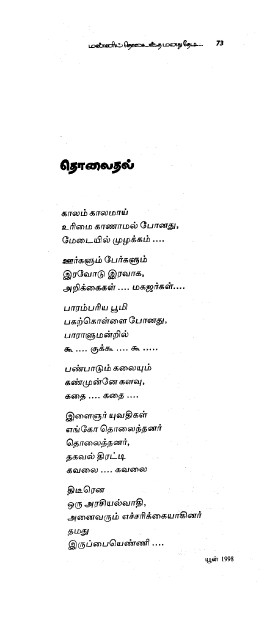 மண்ணிற் தொலைந்த மனது தேடி... 73
தொலைதல்
காலம் காலமாய்
உரிமை காணாமல் போனது,
மேடையில் முழக்கம் ....
ஊர்களும் பேர்களும்
இரவோடு இரவாக,
அறிக்கைகள் .... மகஜர்கள்....
பாரம்பரிய பூமி
பகற்கொள்ளை போனது,
பாராளுமன்றில்
கூ .... குக்கூ .... கூ .....
பண்பாடும் கலையும்
கண்முன்னே களவு,
கதை .... கதை ....
இளைஞர் யுவதிகள்
எங்கோ தொலைந்தனர்
தொலைந்தனர்,
தகவல் திரட்டி
கவலை .... கவலை
திடீரென
ஒரு அரசியல்வாதி,
அனைவரும் எச்சரிக்கையாகினர்
நமது
இருப்பையெண்ணி ....
யூன் 1998